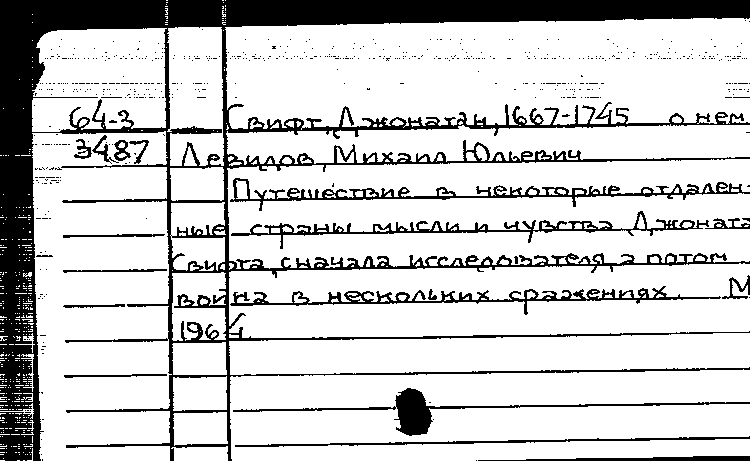 64-3 Свифт, Джонатан, 1667-1745 о нем
3487 Левидов, Михаил Юльевич
Путешествие в некоторые отдален-
ные страны мысли и чувства Джоната
Свифта, сначала исследователя, а потом
война в нескольких сражениях. М
1964